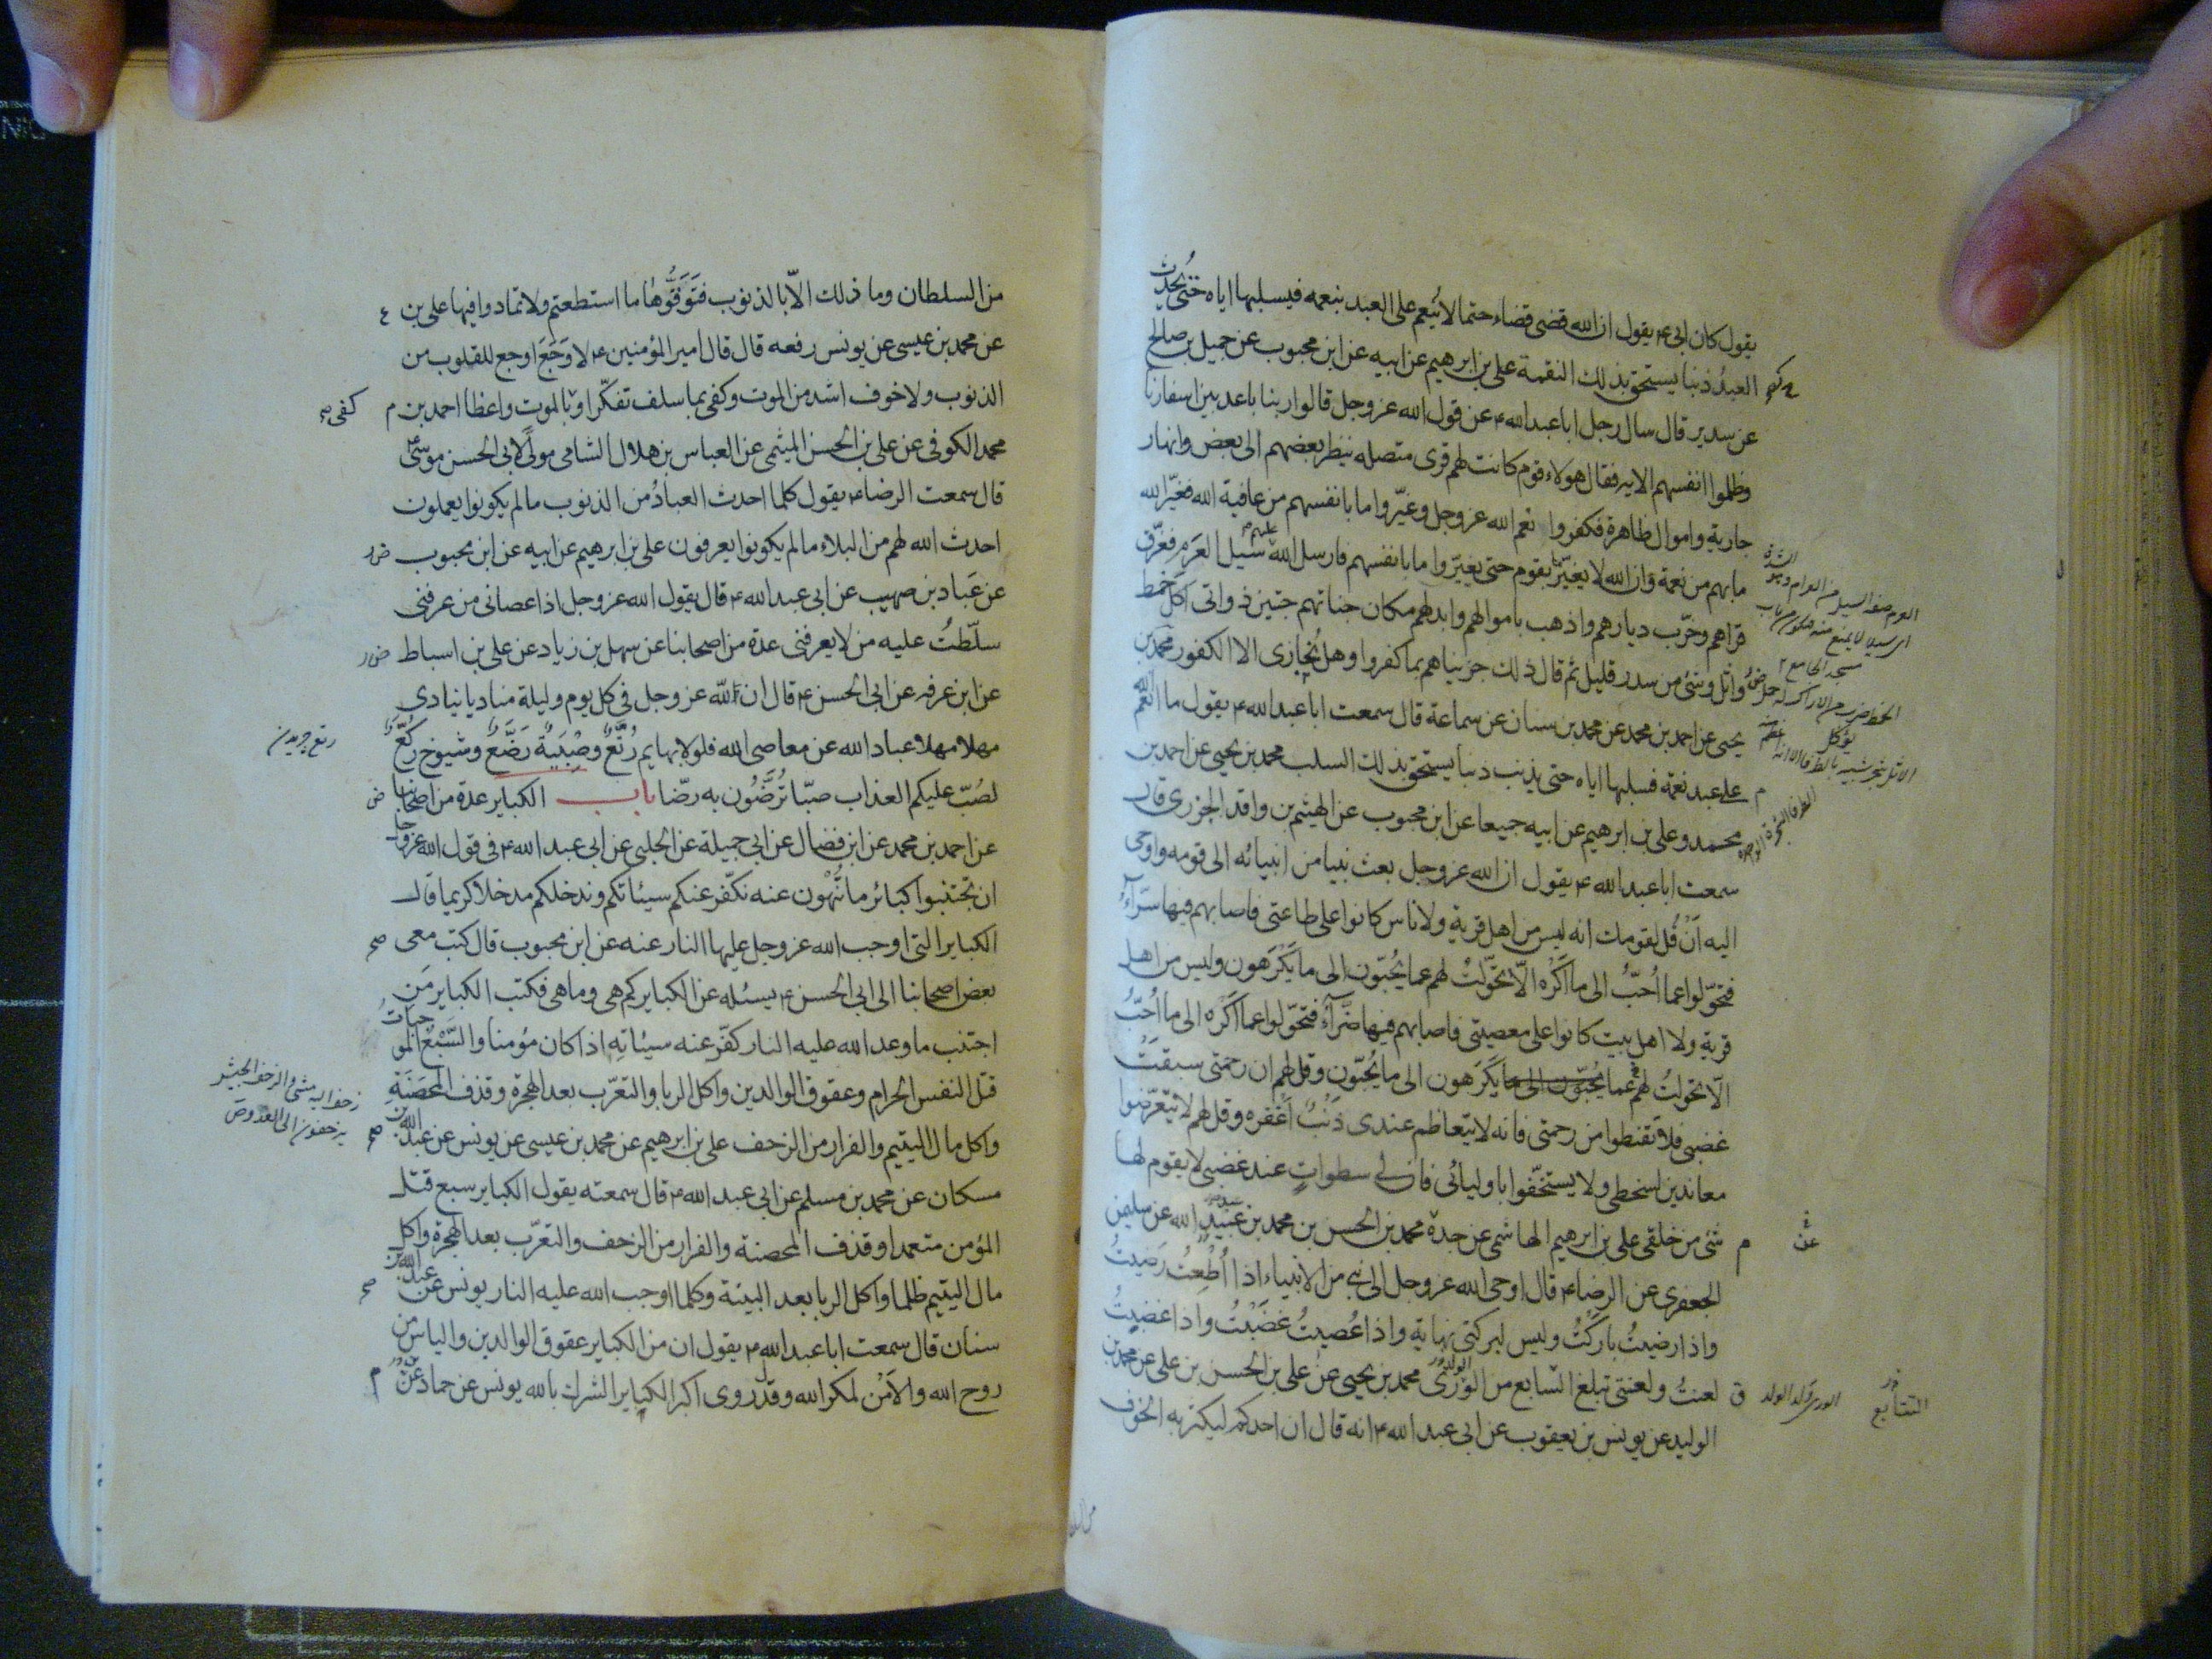 يقول كان ابى ع يقول ان الله قضى قضاء حتما لا ينعم على العبد بنعمه فيسلبها اياه حتى يحدث
العبد ذنبا يستحق بذلك النقمة على بن ابرهيم عن ابيه عن ابن محبوب عن جميل بن صالح
عن سدير قال سال رجل ابا عبد الله ع عن قول الله عز وجل قالوا ربنا باعد بين اسفارنا
وظلموا انفسهم الايه فقال هولاء قوم كانت لهم قرى متصله ينظر بعضهم الى بعض وانهار
جارية واموال ظاهرة فكفروا نعم الله عز وجل وغيّروا ما بانفسهم من عافية الله فغيّر الله
ما بهم من نعمة وان الله لا يغيّر ما بقوم حتى يغيّروا ما بانفسهم فارسل الله عليهم سيل العرم فغرّق
قراهم وخرّب ديارهم واذهب باموالهم وابدلهم مكان جناتهم جنتين ذواتى اكل خمط
واثل وشئ من سدر قليل ثم قال ذلك جزيناهم بما كفروا وهل نجازى الا الكفور محمد بن
يحيى عن احمد بن محمد عن محمد بن سنان عن سماعة قال سمعت ابا عبد الله ع يقول ما انعم الله
على عبد نعمة فسلبها اياه حتى يذنب ذنبا يستحق بذلك السلب محمد بن يحيى عن احمد بن
محمد وعلى بن ابرهيم عن ابيه جميعا عن ابن محبوب عن الهيثم بن واقد الجزرى قال
سمعت ابا عبد الله ع يقول ان الله عز وجل بعث نبيا من انبيائه الى قومه واوحى
اليه اَنْ قُل لقومك انه ليس من اهل قرية ولا ناس كانوا على طاعتى فاصابهم فيها سَرّآءُ
فتحوّلوا عما اُحبّ الى ما اَكْرَه الّا تحوّلتُ لهم عما يُحبّون الى ما يَكْرَهون وليس من اهل
قرية ولا اهل بيت كانوا على معصيتى فاصابهم فيها ضَرّآءُ فتحوّلوا عما اَكْرَه الى ما اُحبّ
الّا تحولتُ لهم عما يُحبّون الى ما يَكْرَهون الى ما يُحبّون وقل لهم ان رحمتى سبقَتْ
غضبى فلا تقنطوا من رحمتى فانه لا يتعاظم عندى ذَنْبٌ اَغْفره وقل لهم لا يتعرّضوا
معاندين لسخطى ولا يستخفّوا باوليائى فان لى سطواتٍ عند غضبى لا يقوم لها
شئ من خلقى على بن ابرهيم الهاشمى عن جدة محمد بن الحسن بن محمد بن عُبَيْد الله عن سليمن
الجعفرى عن الرضا ع قال اوحى الله عز وجل الى نبى من الانبياء اذا اُطِعتُ رَضيتُ
واذا رضيتُ باركْتُ وليس لبركتى نهاية واذا عُصيتُ غَضَبْتُ واذا غضبتُ
لعنتُ ولعنتى تبلغ السّابع من الورى محمد بن يحيى عن على بن الحسن بن على عن محمد بن
الوليد عن يونس بن يعقوب عن ابى عبد الله ع انه قال ان احدكم ليكثر به الخوف
السابع
الورى ولد الولد
عن
من السلطان وما ذلك الّا بالذنوب فتَوَقَّوْها ما استطعتم ولا تمادوا فيها على بن
عن محمد بن عيسى عن يونس رفعه قال قال امير المؤمنين ع لا وَجَعَ اوجع للقلوب من
الذنوب ولا خوف اشد من الموت وكفى بما سلف تفكّرا وبالموت واعظا احمد بن
كفى
محمد الكوفى عن على بن الحسن الميثمى عن العباس بن هلال الشامى مولًى لابى الحسن موسى ع
قال سمعت الرضا ع يقول كلما احدث العبادُ من الذنوب ما لم يكونوا يعملون
احدث الله لهم من البلاء ما لم يكونوا يعرفون على بن ابرهيم عن ابيه عن ابن محبوب
عن عَبّاد بن صهيب عن ابى عبد الله ع قال يقول الله عز وجل اذا عصانى من عرفنى
سلّطتُ عليه من لا يعرفنى عدة من اصحابنا عن سهل بن زياد عن على بن اسباط
عن ابن عرفه عن ابى الحسن ع قال ان لله عز وجل فى كل يوم وليلة مناديا ينادى
مهلا مهلا عباد الله عن معاصى الله فلولا بهايم رُتَّعٌ وصِبْيَةٌ رُضَّعٌ وشيوخ رُكَّعٌ
رتع چريدن
لصُبّ عليكم العذاب صبّا تُرَضُّون به رضّا باب الكباير عدة من اصحابنا
عن احمد بن محمد عن ابن فضال عن ابى جميلة عن الحلبى عن ابى عبد الله ع فى قول الله عز وجل
ان تجتنبوا كبائر ما تُنْهَوْن عنه نكفّر عنكم سيئاتكم وندخلكم مدخلا كريما قال
الكباير التى اوجب الله عز وجل عليها النار عنه عن ابن محبوب قال كتب معى
بعض اصحابنا الى ابى الحسن ع يسئله عن الكباير كم هى وما هى فكتب الكباير مَن
اجتنب ما وعد الله عليه النار كفّر عنه سيئاتِه اذا كان مؤمنا والسَّبْعُ الموجباتُ
قتل النفس الحرام وعقوق الوالدين واكل الربا والتعرّب بعد الهجرة وقذف المحصَنَةِ
واكل مال اليتيم والفرار من الزحف على بن ابرهيم عن محمد بن عيسى عن يونس عن عبد الله بن
مسكان عن محمد بن مسلم عن ابى عبد الله ع قال سمعته يقول الكباير سبع قتل
المؤمن متعمدا وقذف المحصنة والفرار من الزحف والتعرّب بعد الهجرة واكل
مال اليتيم ظلما واكل الربا بعد البينة وكلما اوجب الله عليه النار يونس عن عبد الله بن
سنان قال سمعت ابا عبد الله ع يقول ان من الكباير عقوق الوالدين والياس من
روح الله والاَمْن لمكر الله وقد روى اكبر الكباير الشرك بالله يونس عن حماد عن